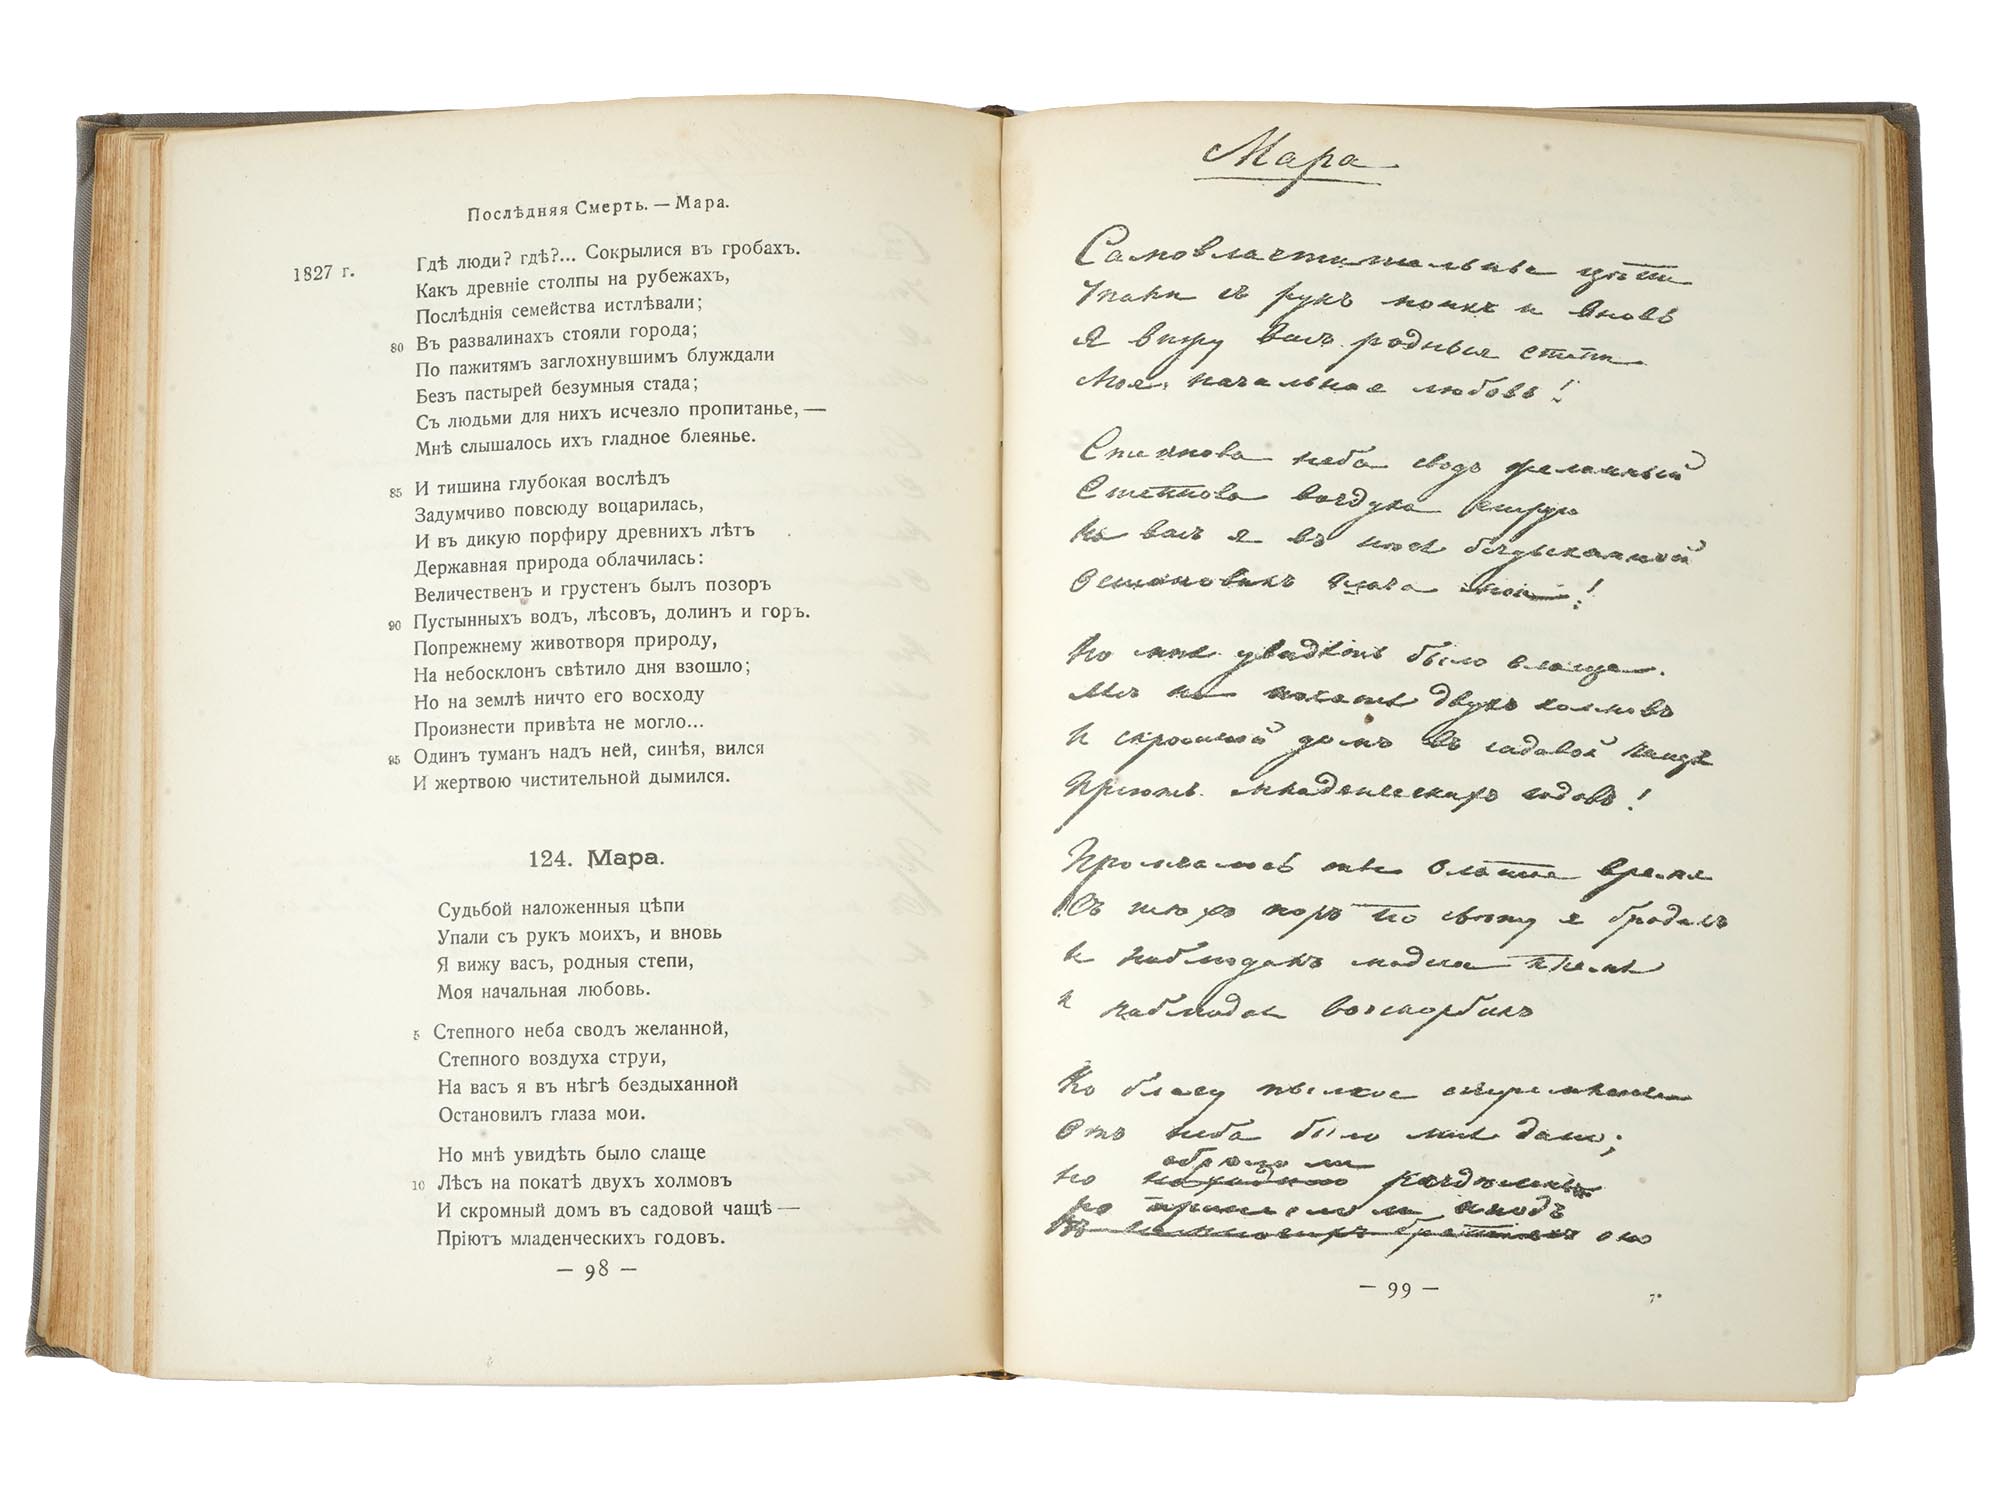 Послѣдняя Смерть. — Мара.
1827 г.
Гдѣ люди? гдѣ?... Сокрылися въ гробахъ.
Какъ древніе столпы на рубежахъ,
Послѣднія семейства истлѣвали;
80 Въ развалинахъ стояли города;
По пажитямъ заглохнувшимъ блуждали
Безъ пастырей безумныя стада;
Съ людьми для нихъ исчезло пропитанье, —
Мнѣ слышалось ихъ гладное блеянье.
85 И тишина глубокая вослѣдъ
Задумчиво повсюду воцарилась,
И въ дикую порфиру древнихъ лѣтъ
Державная природа облачилась:
Величественъ и грустенъ былъ позоръ
90 Пустынныхъ водъ, лѣсовъ, долинъ и горъ.
Попрежнему животворя природу,
На небосклонъ свѣтило дня взошло;
Но на землѣ ничто его восходу
Произнести привѣта не могло...
95 Одинъ туманъ надъ ней, синѣя, вился
И жертвою чистительной дымился.
124. Мара.
Судьбой наложенныя цѣпи
Упали съ рукъ моихъ, и вновь
Я вижу васъ, родныя степи,
Моя начальная любовь.
5 Степного неба сводъ желанной,
Степного воздуха струи,
На васъ я въ нѣгѣ бездыханной
Остановилъ глаза мои.
Но мнѣ увидѣть было слаще
10 Лѣсъ на покатѣ двухъ холмовъ
И скромный домъ въ садовой чащѣ —
Пріютъ младенческихъ годовъ.
— 98 —
Мара
Самовластительные цѣпи
Упали съ рукъ моихъ и вновь
Я вижу васъ родныя степи
Моя начальная любовь!
Степнова неба сводъ желанный
Степнова воздуха струи
На васъ я въ нѣгѣ бездыханной
Остановилъ глаза мои!
Но мнѣ увидѣть было слаще
Лѣсъ на покатѣ двухъ холмовъ
И скромный домъ въ садовой чащѣ
Пріютъ младенческихъ годовъ!
Промчалось ты златое время
Съ тѣхъ поръ по свѣту я бродилъ
И наблюдалъ людское племя
И наблюдая восскорбилъ
Ко благу пылкое стремленье
Отъ неба было мнѣ дано;
обрело ли
Но раздѣленье
Но принесло ли плодъ оно
— 99 —
7*